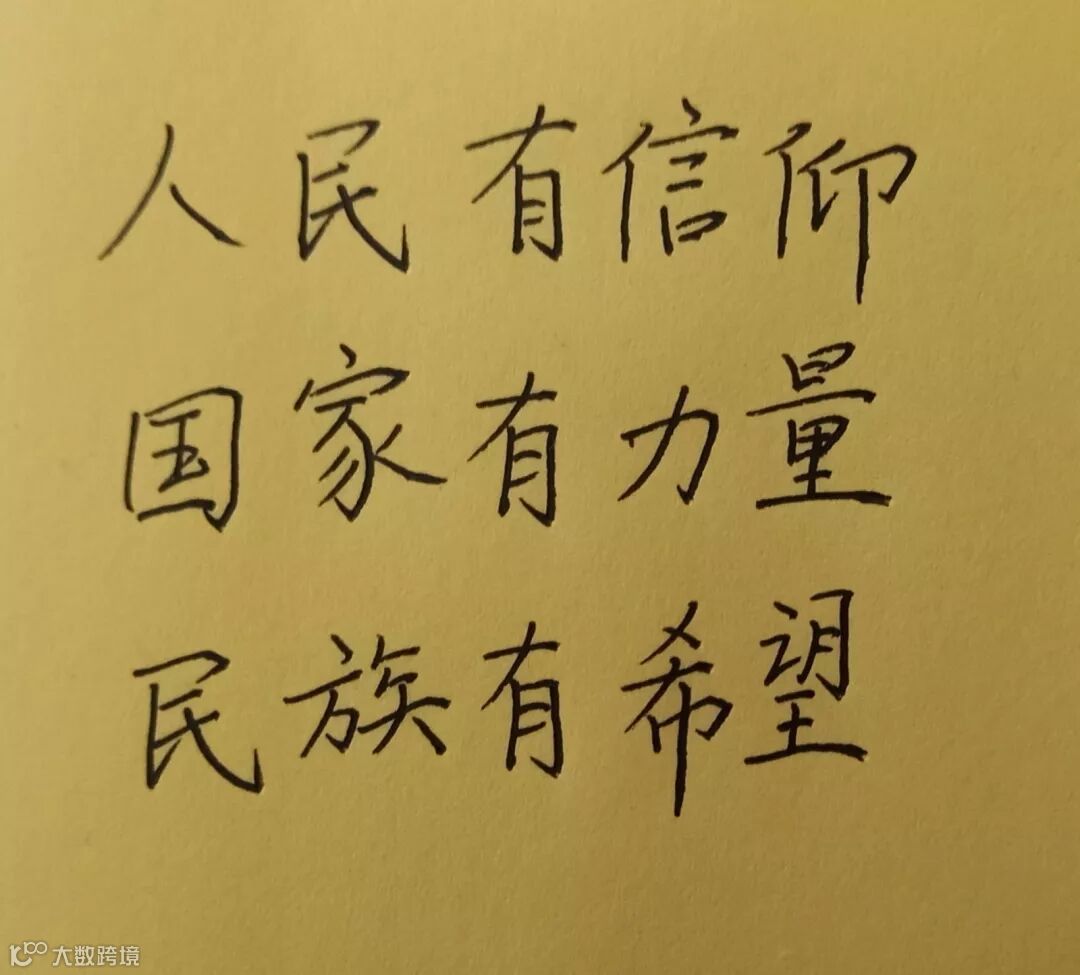 人民有信仰
国家有力量
民族有希望
大数跨境